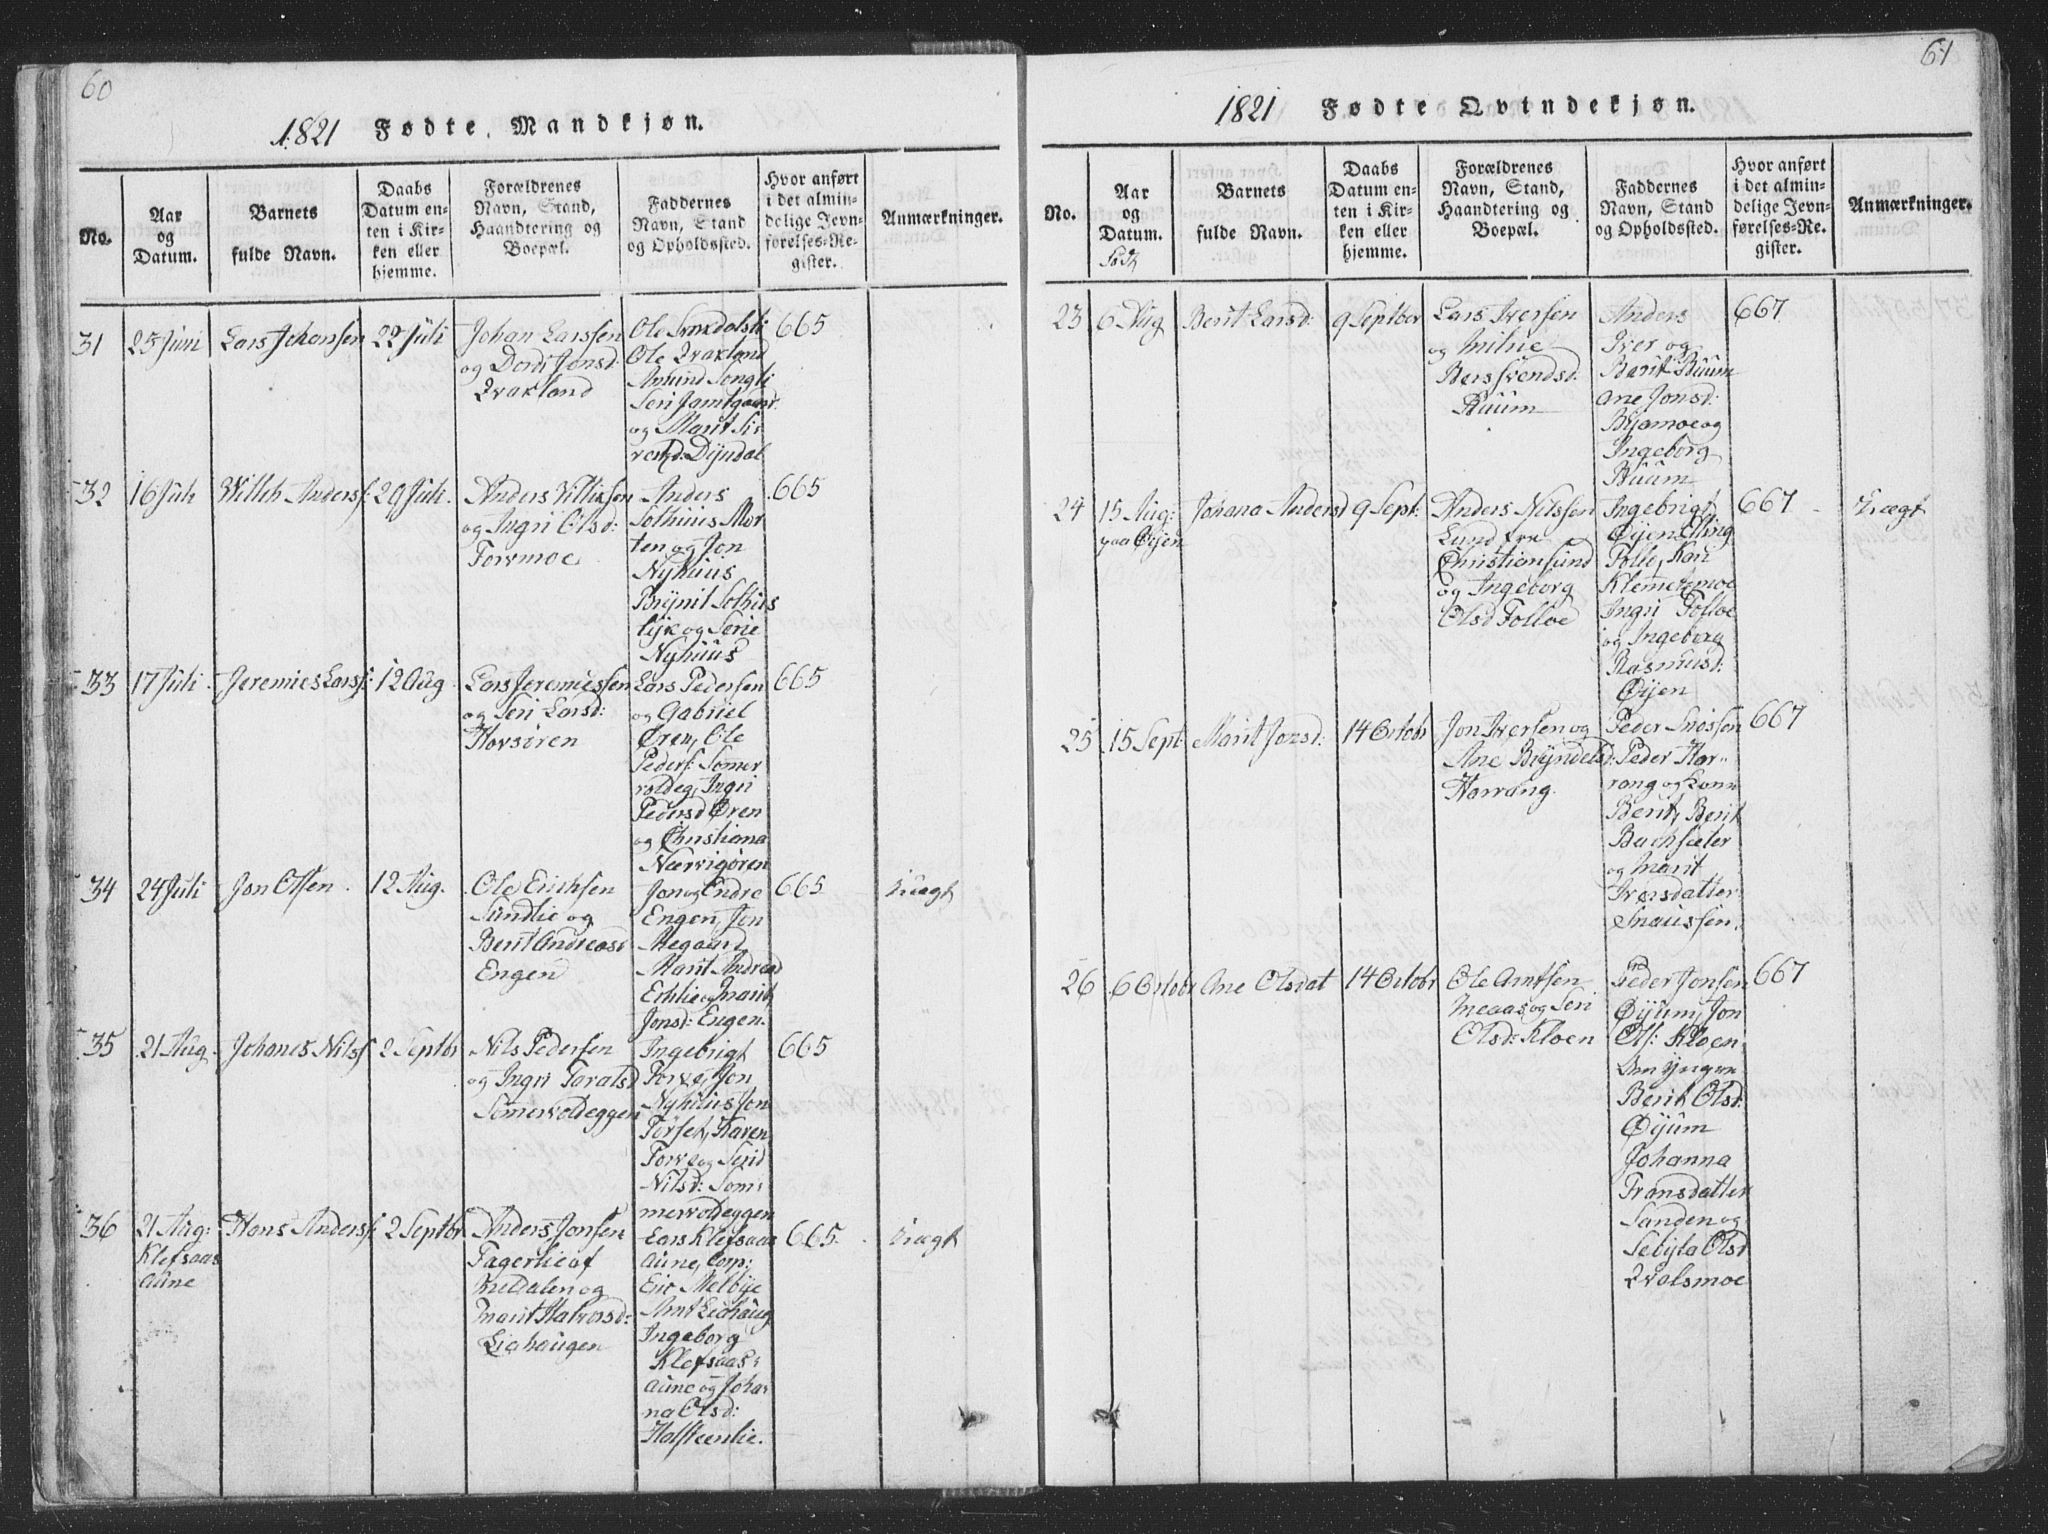 60
1821 Fødte Mandkjøn.
No.
Aar
og
Datum.
Barnets
fulde Navn.
Daabs
Datum en-
ten i Kir-
ken eller
hjemme.
Forældrenes
Navn, Stand,
Haandtering og
Boepæl.
Faddernes
Navn, Stand
og Opholdssted.
Hvor anført
i det almin-
delige Jevn-
førelses-Re-
gister.
Anmærkninger.
31
25 Juni
Lars Johansen
22 Juli
Johan Larssen
og Dordi Jonsd:
Qvakland
Ole Qvakland
Amund Songli
Seri Jamtgaard
og Marit Si-
665
32
16 Juli
Willth Andersf:
29 Juli.
Anders Villiksen
og Ingri Olsd:
Torvmoe
Anders
Sothuus Mor
ten og Jon
Nyhuus
Brynil Sothus
og Serie
Nyhuus
665
33
17 Juli
Jeremies Larsf:
12 Aug
Lars Jeremiessen
og Seri Larsd:
Horsören
Lars Pedersen
og Gabriel
Øren, Ole
Peders: Somer
voldeg, Ingri
Pedersd Øren
og Christiana
Nærvigören
665
34
24 Juli
Jon Olsen
12 Aug.
Ole Erichsen
Sundlie og
Berit Andreasd
Engen
Jon og Endre
Engen, Jon
Megaard
Marit Andreasd
og Marit
Jonsd: Engen.
665
Uægt
35
21 Aug.
Johanes Nilsf
2 Septbr
Nils Pedersen
og Ingri Toralsd
Somervoldeggen
Ingebrigt
Torve, Jon
Nyhuus Jon
Torset, Karen
Torve og Serid
Nilsd: Som-
mervoldeggen
665
36
21 Aug:
Klefsaas
Aune
Hans Andersf.
2 Septbr
Anders Jonsen
Fagerlie af
Meldalen og
Marit Halvorsd:
Liahaugen
Lars Klefsaas
Aune, Corp:
Eric Melbye
Arnt Liahaug
Ingeborg
Klefsaas-
aune og Joha-
na Olsd:
Halsteenlie.
665.
Uægt
61
1821 Fødte Qvindekjøn.
No.
Aar
og
Datum.
Født
Barnets
fulde Navn.
Daabs
Datum en-
ten i Kir-
ken eller
hjemme.
Forældrenes
Navn, Stand,
Haandtering og
Boepæl.
Faddernes
Navn, Stand
og Opholdssted.
Hvor anført
i det almin-
delige Jevn-
førelses-Re-
gister.
Anmærkninger.
23
6 Aug
Berit Larsd:
9 Septbr
Lars Iversen
og
Ruum
Anders
Iver og
Berit Ruum
Ane Jonsd:
Byamoe og
Ingeborg
Ruum
667
24
15 Aug:
paa Øyen
Johana Andersd
9 Sept:
Anders Nilssen
Lund fra
Christiansund
og Ingeborg
Olsd Folloe
Ingebrigt
Øyen Elling
Follo, Kari
Klemetsmoe
Ingri Folloe
og Ingeborg
Rasmusd:
Øyen
667
Uægt
25
15 Sept
Marit Jonsd:
14 Octobr
Jon Iversen og
Ane Bryndelsd:
Harrang.
Peder Snossen
Peder Har-
rang og Kone
Berit, Berit
Bachsæter
og Marit
Iversdatter
Snaussen.
667
26
6 Octobr
Ane Olsdat
14 Octobr
Ole Arntsen
Meaas og Seri
Olsd: Kloen
Peder Jonsen
Øyum, Jon
Ols: Kloen
den yngre
Berit Olsd:
Øyum
Johanna
Fransdatter
Sanden og
Sebyla Olsd
Qvalsmoe
667